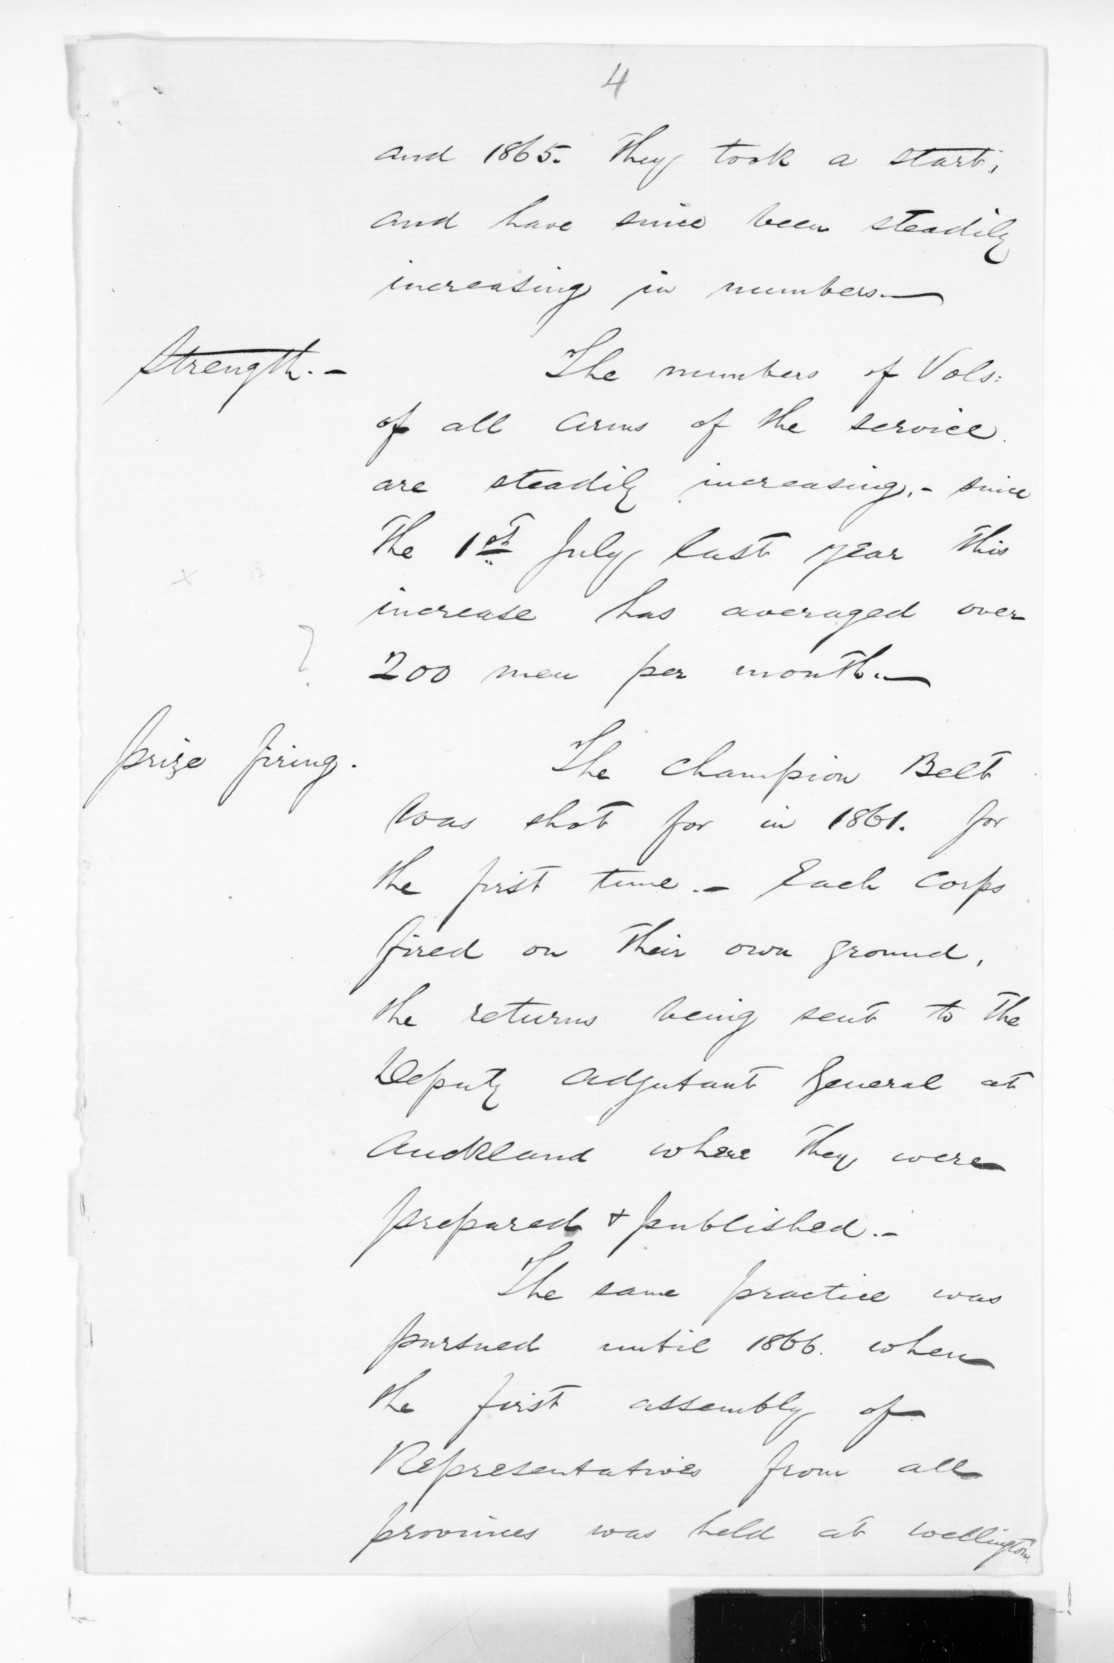 4
and 1865. they took a start,
and have since been steadily
increasing in numbers.—
Strength.-
The numbers of Vols:
of all arms of the service
are steadily increasing,- since
the 1st July last year this
increase has averaged over
200 men per month.—
?
prize firing.
The Champion Belt
was shot for in 1861. for
the first time.- Each Corps
fired on their own ground,
the returns being sent to the
Deputy Adjutant General at
Auckland where they were
prepared + published.-
The same practice was
pursued until 1866. when
the first assembly of
Representatives from all
provinces was held at Wellington